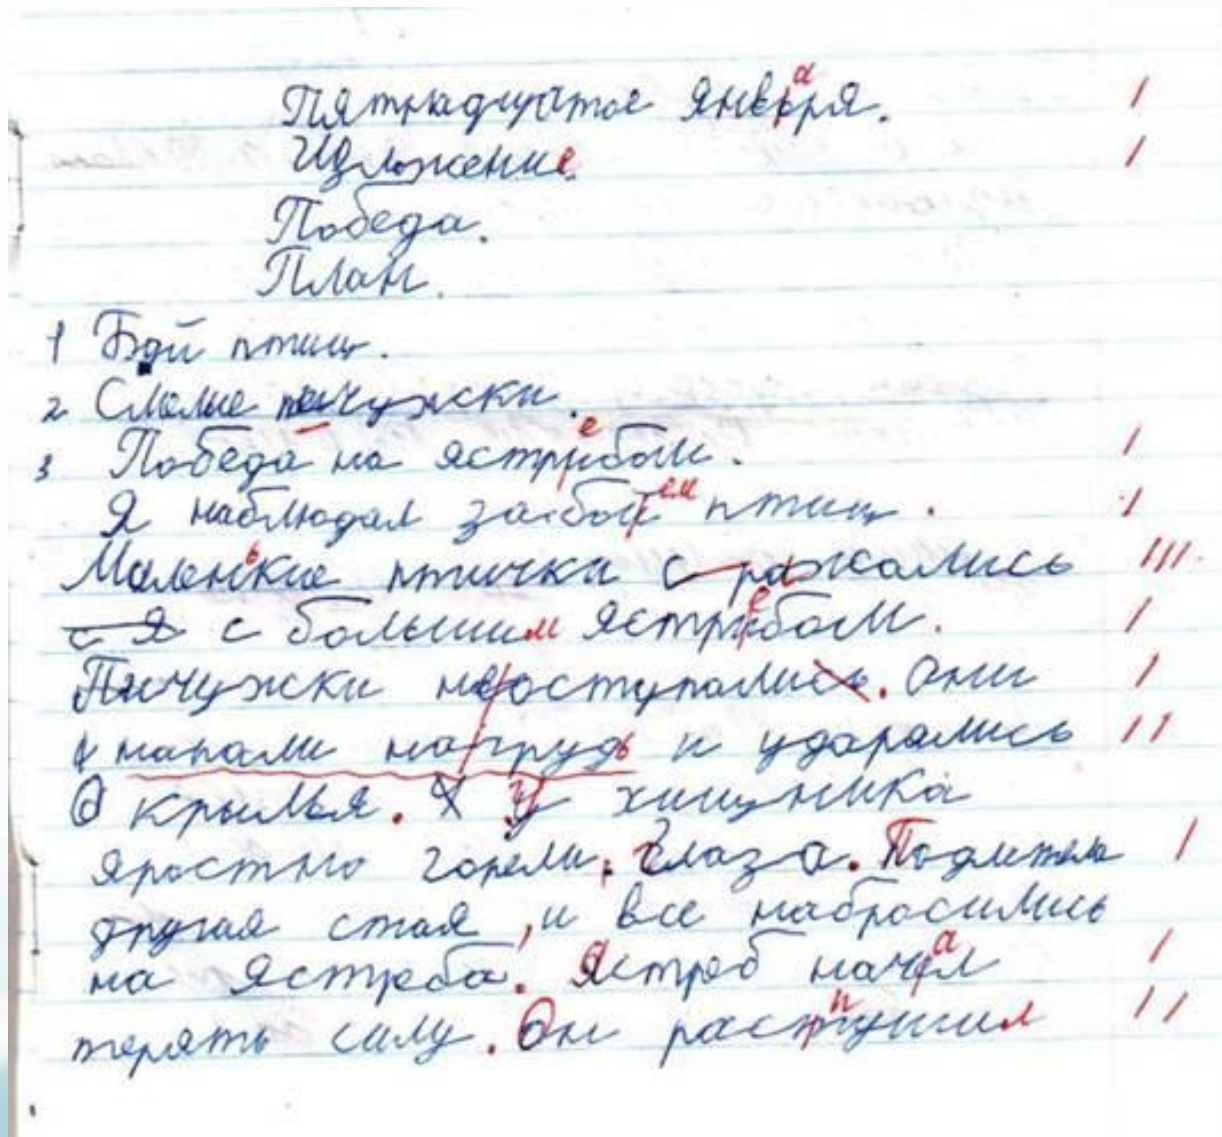 Пятнадцатое января.
Изложение.
Победа.
План.
1 Бой птиц.
2 Смелые пичужски.
3 Победа на ястребом.
Я наблюдал за боем птиц.
Маленькие птички с ражались
с я с большим ястребом.
Пичужски не оступались. Они
напали на грудь и ударялись
О крылья. У хищника
яростно горели глаза. Подлетела
другая стая, и все набросились
на ястреба. Ястреб начал
терять силу. Он распушил